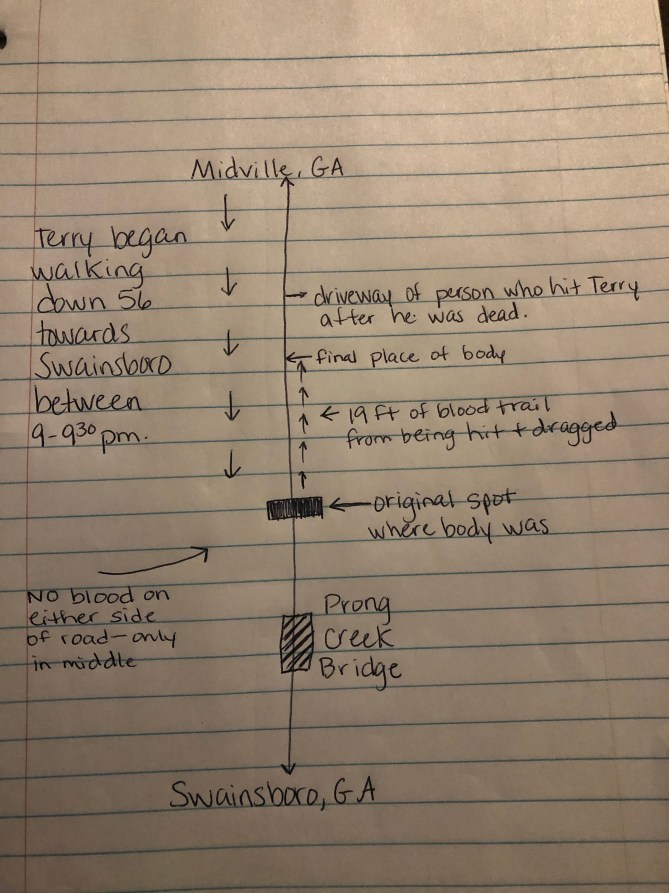 Midville, GA
Terry began
walking
down 56
towards
Swainsboro
between
9-9³⁰ pm.
driveway of person who hit Terry
after he was dead.
final place of body
19 ft of blood trail
from being hit + dragged
original spot
where body was
NO blood on
either side
of road-only
in middle
Prong
Creek
Bridge
Swainsboro, GA